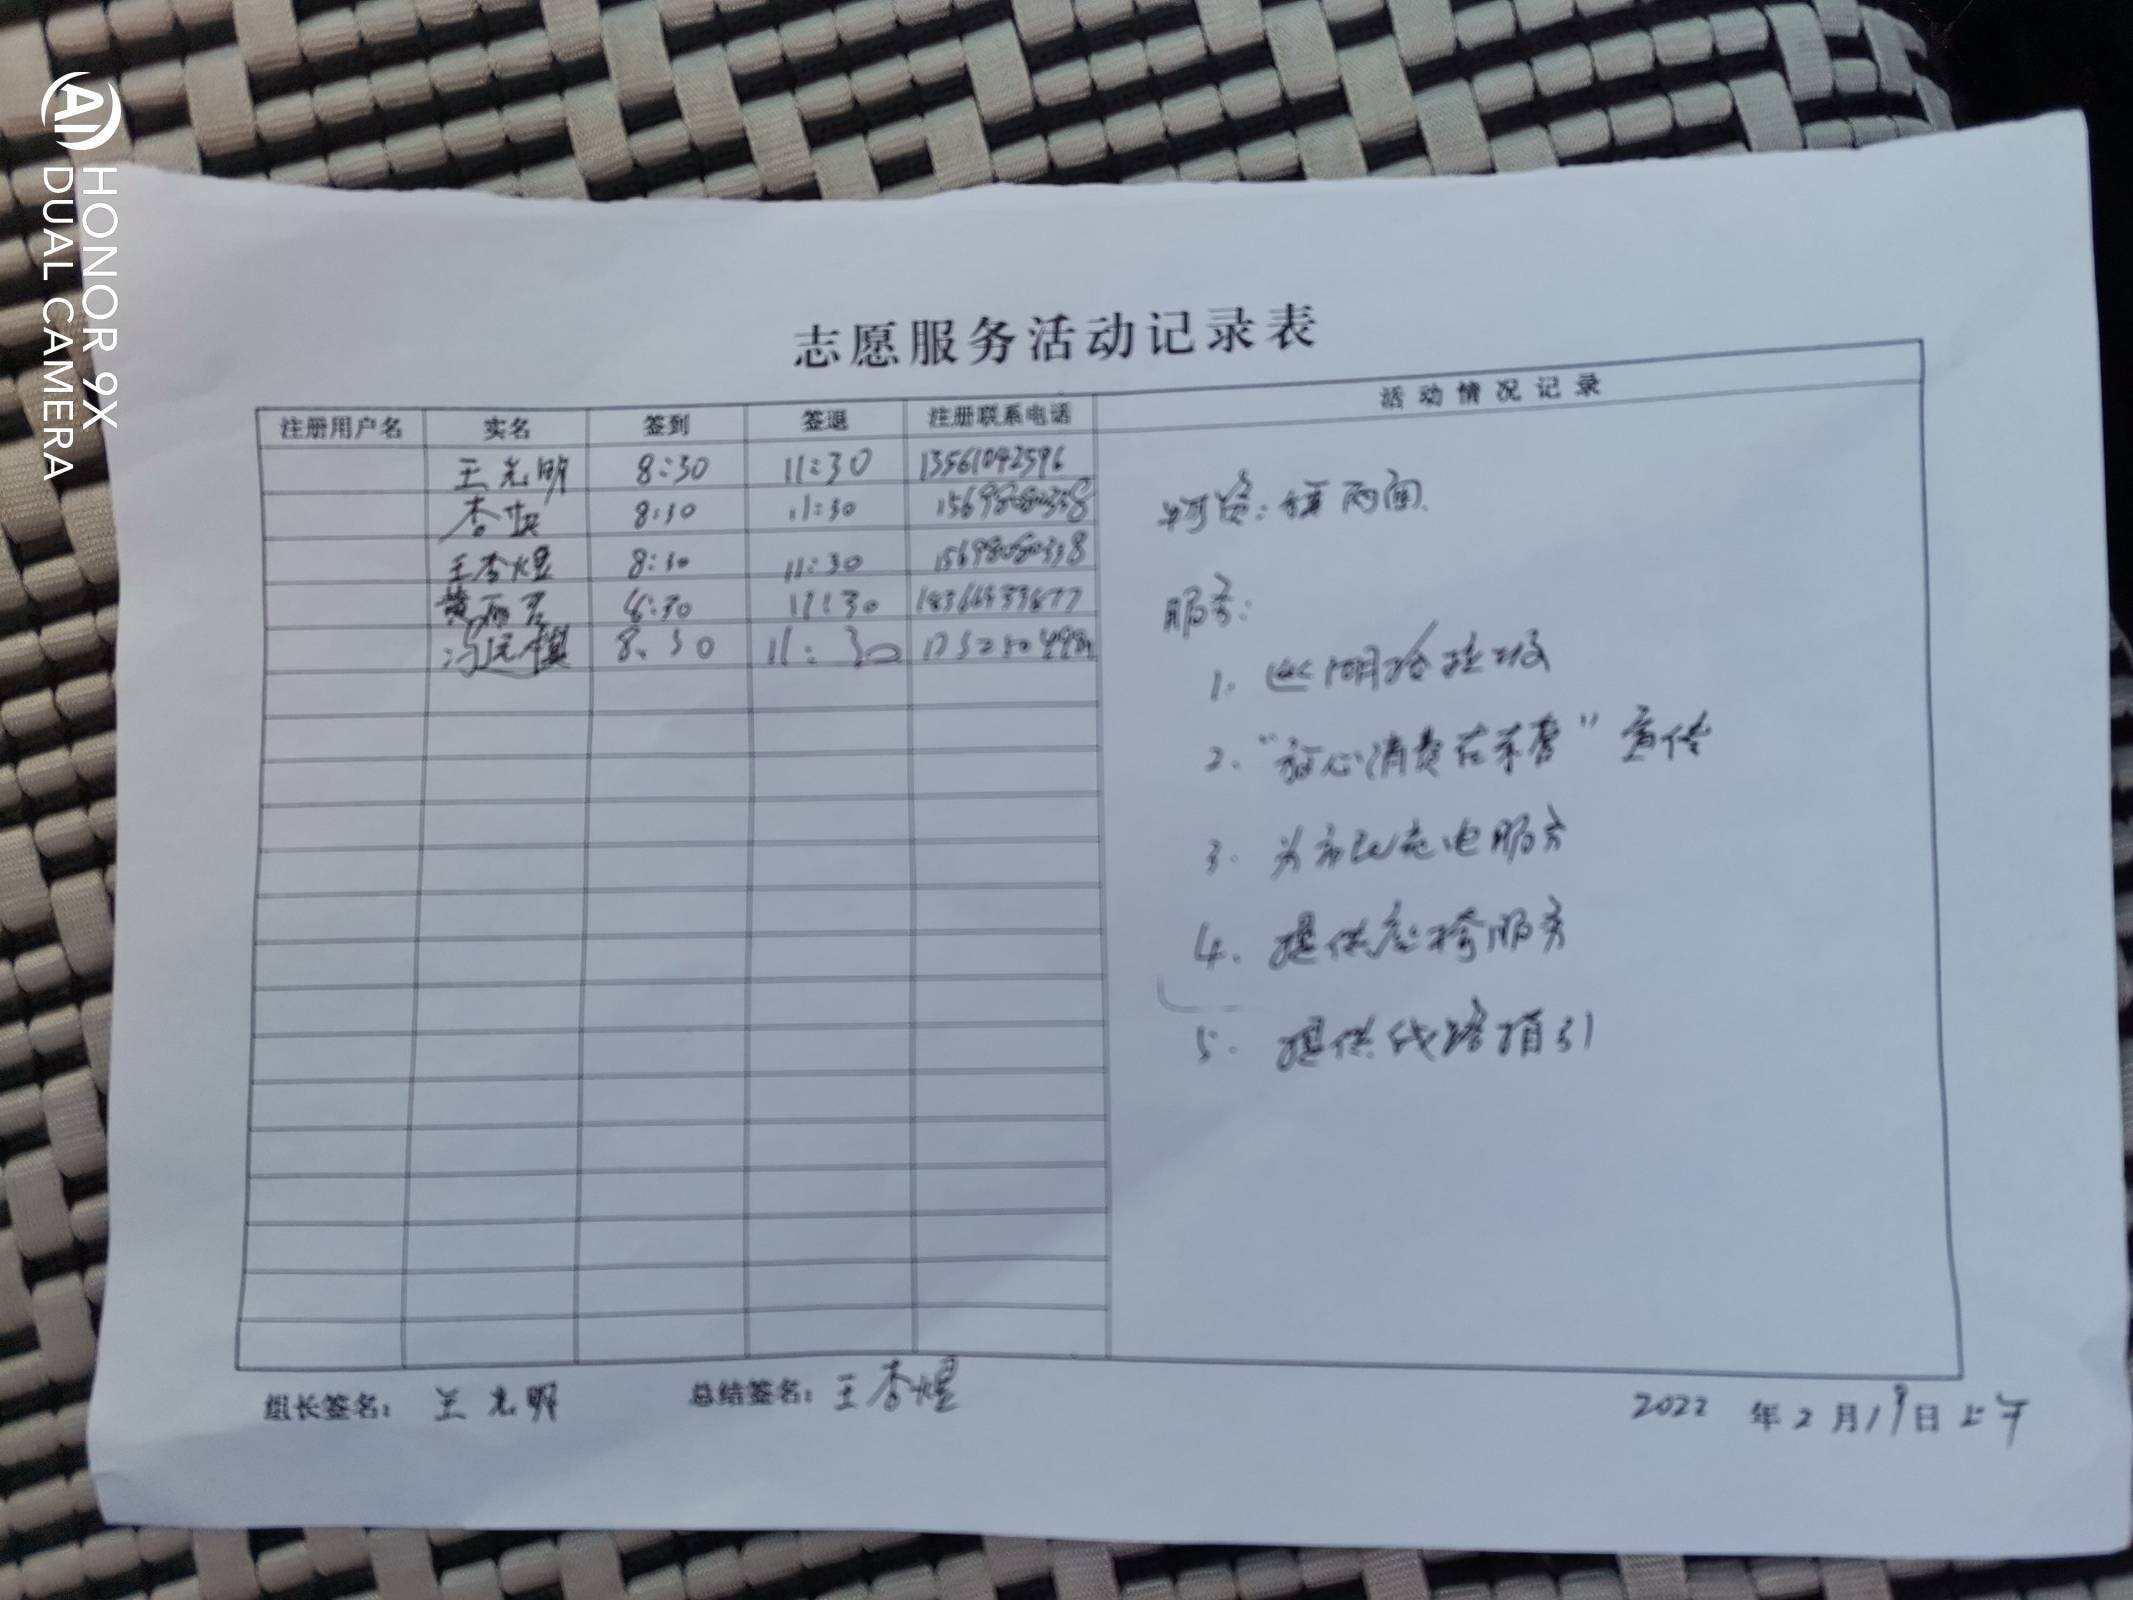 HONOR 9X
AI DUAL CAMERA
志愿服务活动记录表
注册用户名 实名 签到 签退 注册联系电话 活动情况记录
王光明 8:30 11:30 13561042596
李 8:30 11:30 15698080338
王李煜 8:30 11:30 15698080338
黄丽君 8:30 11:30
冯远 8:30 11:30
物资: 两面
服务:
1. 湖拾垃圾
2. “放心消费在东营”宣传
3. 为市民充电服务
4. 提供服务
5. 提供线路指引
组长签名: 王光明 总结签名: 王李煜 2022年2月19日上午